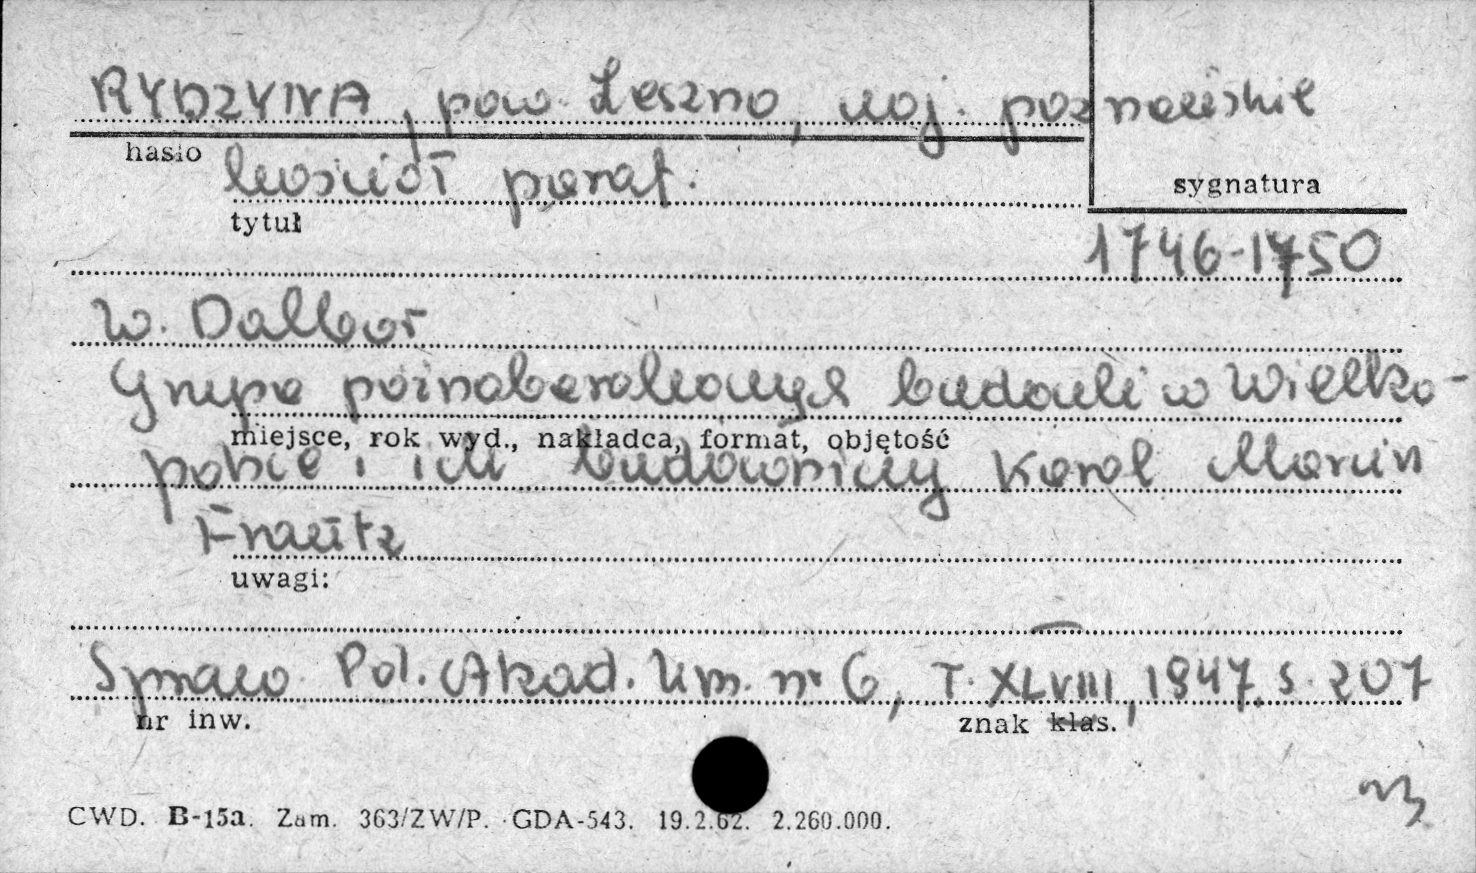 RYDZYNA, pow. Leszno, woj. poznańskie
hasło
kościół paraf.
sygnatura
tytuł
1746-1750
W. Dalbor
Grupa późnobarokowych budowli w Wielko-
miejsce, rok wyd., nakładca, format, objętość
polsce i ich budowniczy Karol Marcin
Frantz
uwagi:
Spraw. Pol. Akad. Um. nr 6, T. XLVIII, 1947, s. 207
nr inw.
znak klas.
CWD. B-15a. Zam. 363/ZW/P. GDA-543. 19.2.62. 2.260.000.